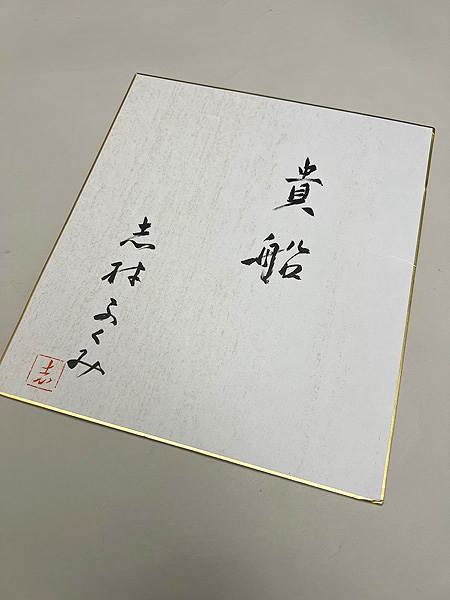 貴船
志村ふくみ
志